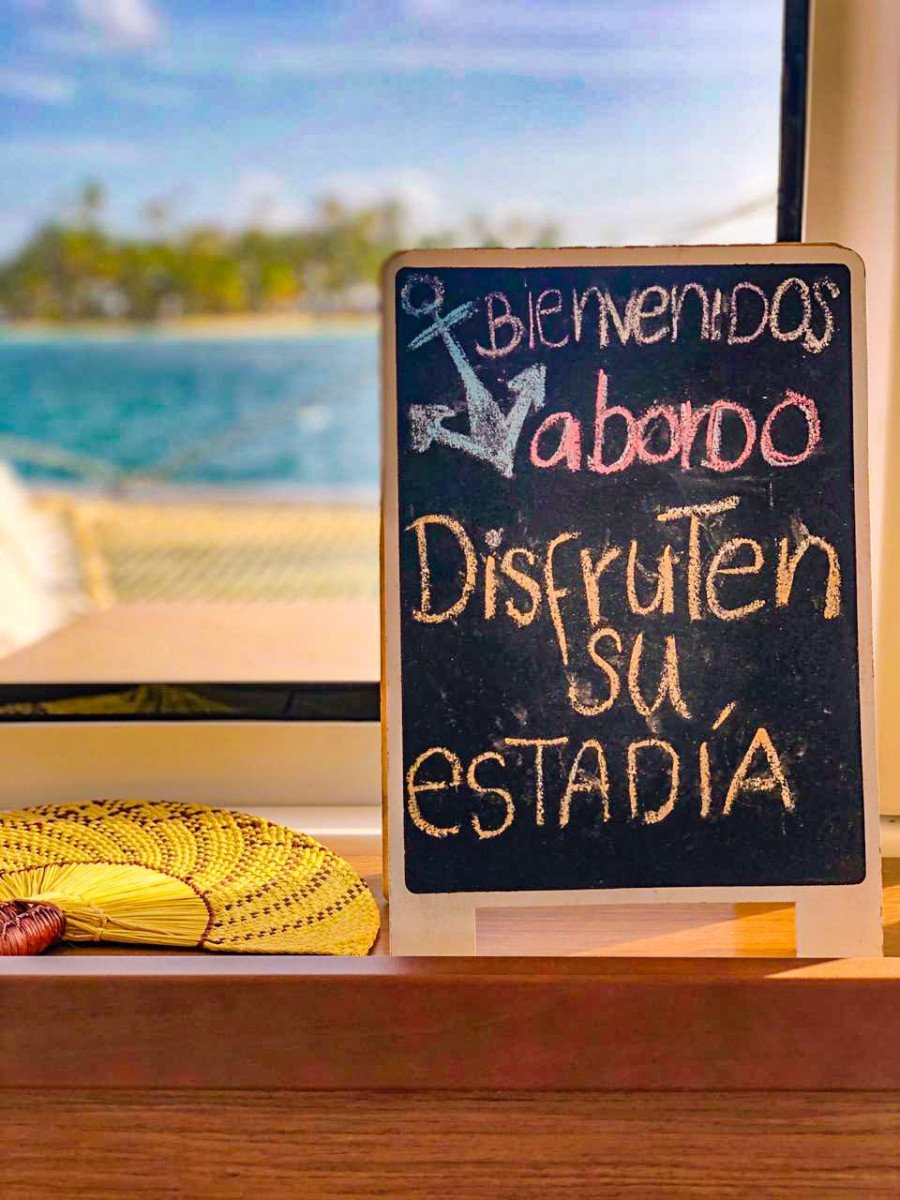 BIenvenIDOS
abordo
DisfruTen
su
esTADÍA